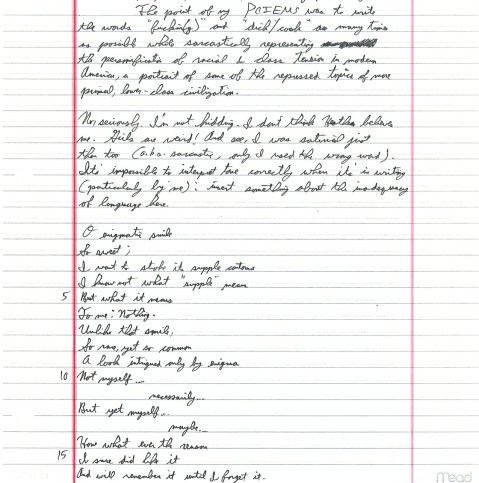 The point of my POEMS was to write
the words "fuck(ing)" and "dick/cock" as many times
as possible while sarcastically representing
the personification of racial & class tension in modern
America, a portrait of some of the repressed topics of more
primal, lower-class civilization.
No, seriously. I'm not kidding. I don't think believes
me. Girls are weird! And see, I was satirical just
then too (a.k.a. sarcastic, only I used the wrong word).
It's impossible to interpret tone correctly when it's in writing
(particularly by me): insert something about the inadequacy
of language here.
O enigmatic smile
So sweet;
I want to stroke it supple
I know not what "supple" means
5 But what it means
To me: Nothing.
Unlike that smile,
So rare, yet so common
A look intrigued only by enigma
10 Not myself...
necessarily...
But yet myself...
maybe...
How what ever the reason
15 I sure did like it
And will remember it until I forget it.
Mead